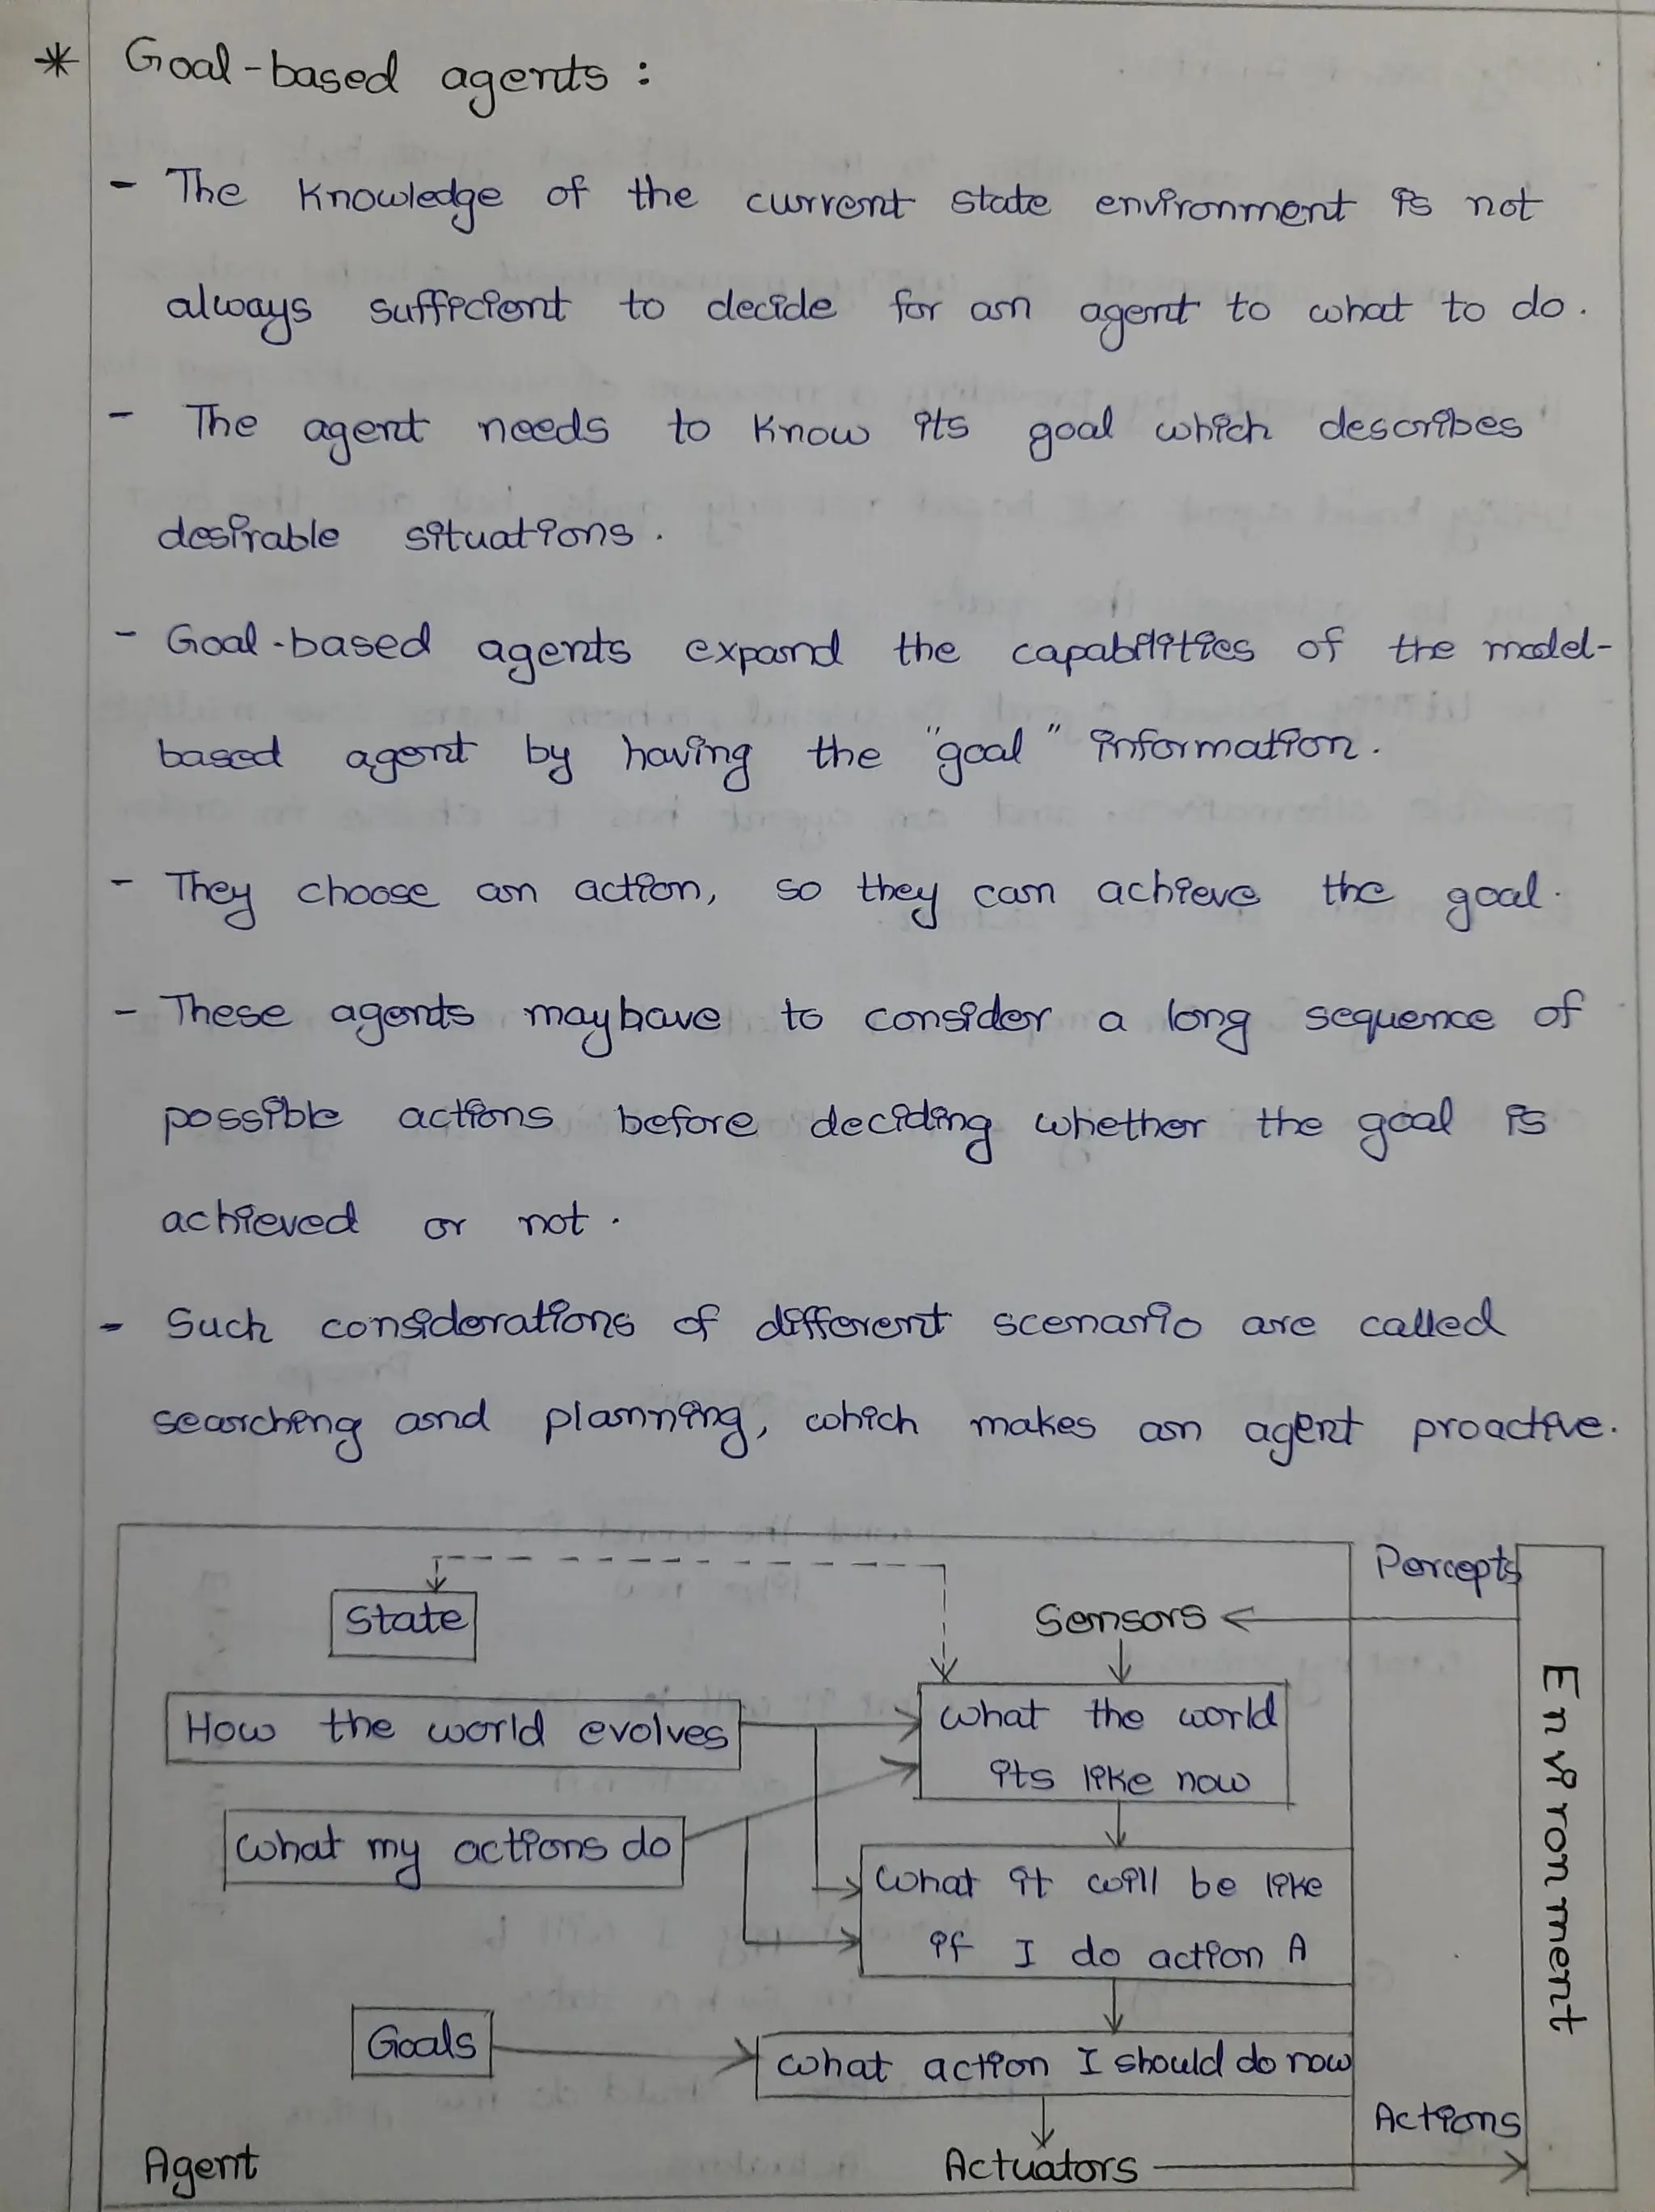 * Goal-based agents :
- The knowledge of the current state environment is not
always sufficient to decide for an agent to what to do.
- The agent needs to know its goal which describes
desirable situations.
- Goal-based agents expand the capabilities of the model-
based agent by having the "goal" information.
- They choose an action, so they can achieve the goal.
- These agents may have to consider a long sequence of
possible actions before deciding whether the goal is
achieved or not.
- Such considerations of different scenario are called
searching and planning, which makes an agent proactive.
Percepts
State
Sensors
How the world evolves
What the world
its like now
What my actions do
What it will be like
if I do action A
Goals
What action I should do now
Environment
Actions
Agent
Actuators